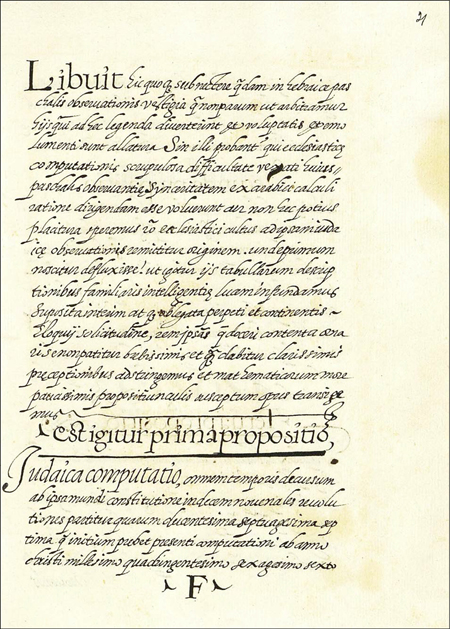 31
Libuit hic quoq; subnectere q̄dam in hebraice pas
chalis observationis vestigia q̄ non parum ut arbitramur
hijs qui ad hec legenda diverterint et voluptatis et emo
lumenti sint allatura. Sin illi probant qui ecclesiastice
computationis scrupulosa difficultate vexati huius
paschalis observantie synceritatem ex arabici calculi
ratione dirigendam esse voluerunt cur non hec potius
placitura speremus
ice observationis remittitur originem. unde primum
noscitur defluxisse. ut igitur ijs tabullarum descrip
tionibus familiaris intelligentie lucem infundamus
suposita interim atq; ablegata perpeti et continentis
eloquij solicitudine, rem ipsam q̄ doceri contenta orna
ris e non patitur brevissimis et q̄ clabitur clarissimis
preceptionibus adstringemus et mathematicorum more
paucissimis propositiunculis susceptum opus transige
mus
est igitur prima propositio,
Judaica computatio, omnem temporis decursum
ab ipsa mundi constitutione in decem novenales revolu
tiones partitur quarum ducentesima septuagesima sep
tima q̄ initium prebet presenti computationi ab anno
christi millesimo quadringentesimo sexagesimo sexto
F